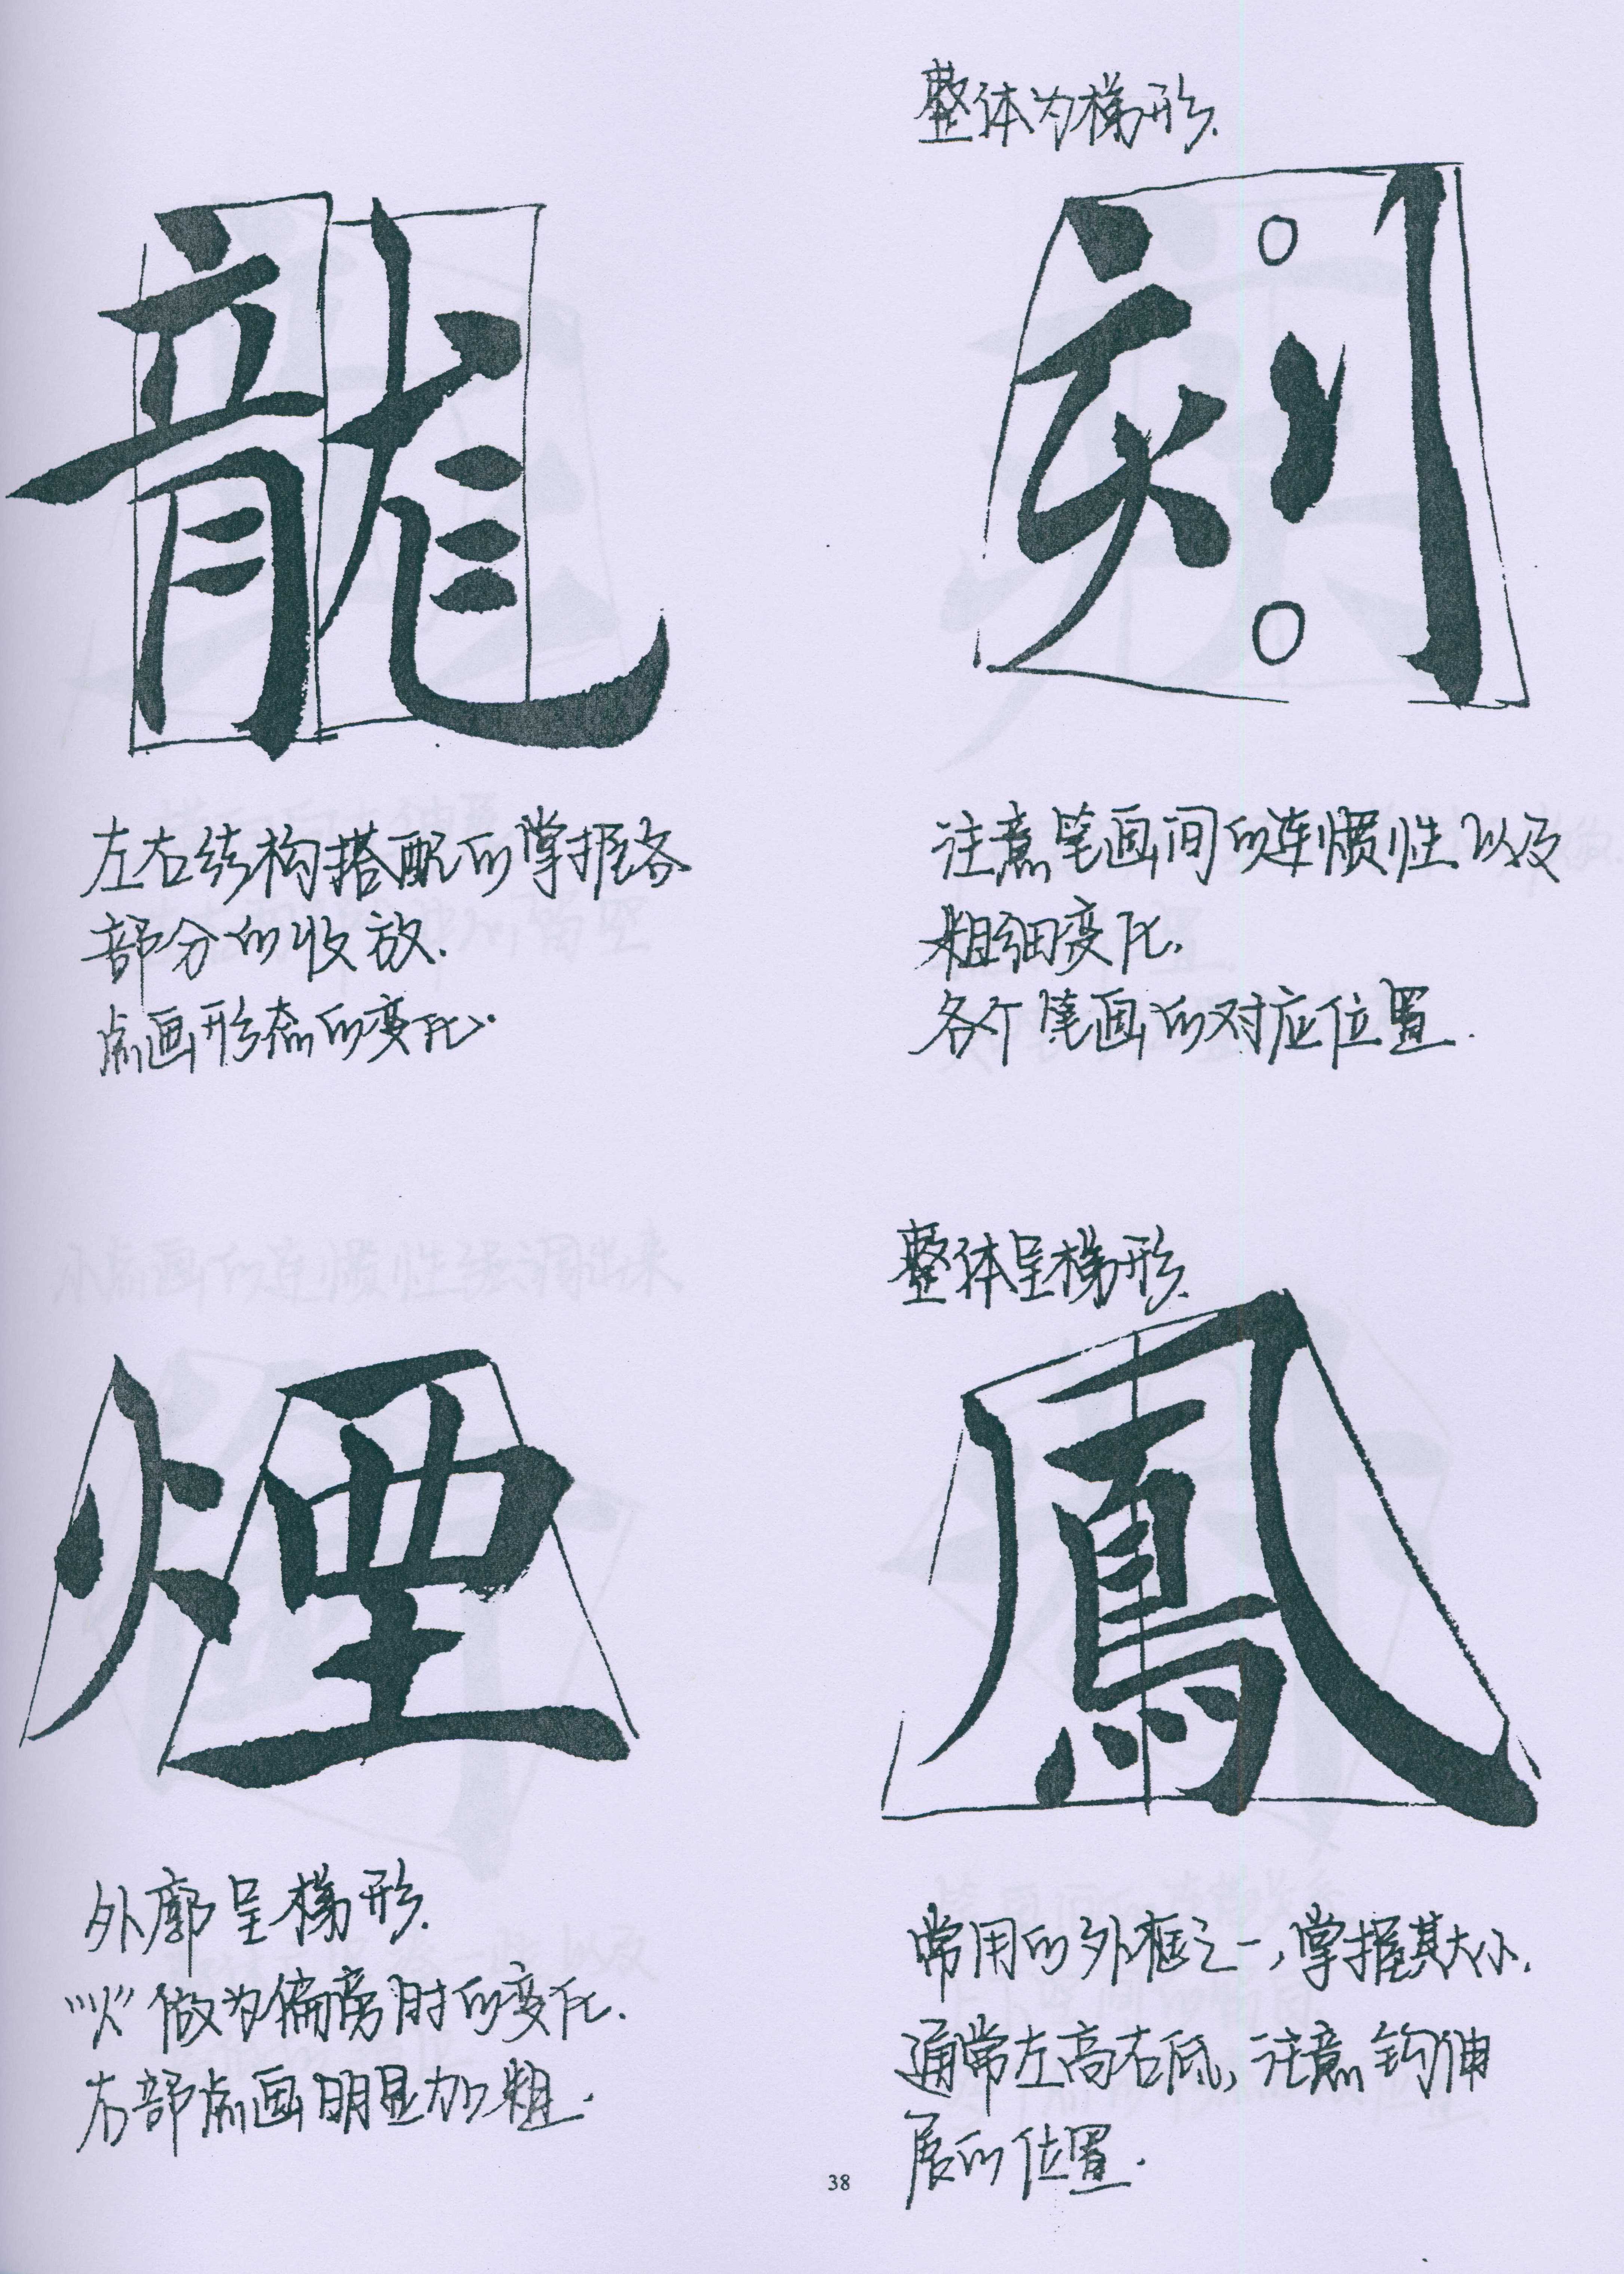 龍
左右结构搭配的掌握各
部分的收放.
点画形态的变化.
整体为梯形.
刻
注意笔画间的连惯性以及
粗细变化.
各个笔画的对应位置.
煙
外廓呈梯形.
"火"做为偏旁时的变化.
右部点画明显加粗.
整体呈梯形.
鳳
常用的外框之一,掌握其大小.
通常左高右低,注意钩伸
展的位置.
38